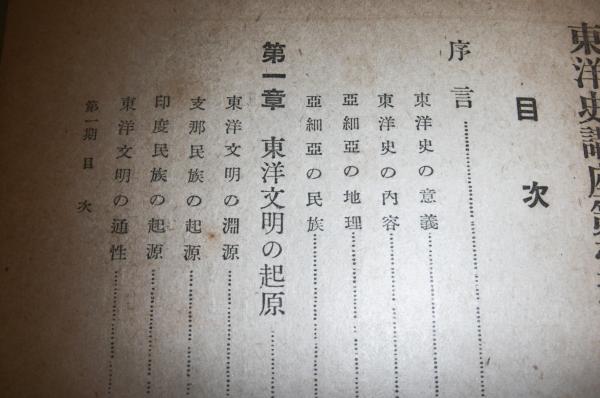 東洋史講座第
目次
序言
東洋史の意義
東洋史の內容
亞細亞の地理
亞細亞の民族
第一章 東洋文明の起原
東洋文明の淵源
支那民族の起源
印度民族の起源
東洋文明の通性
第一期 目次